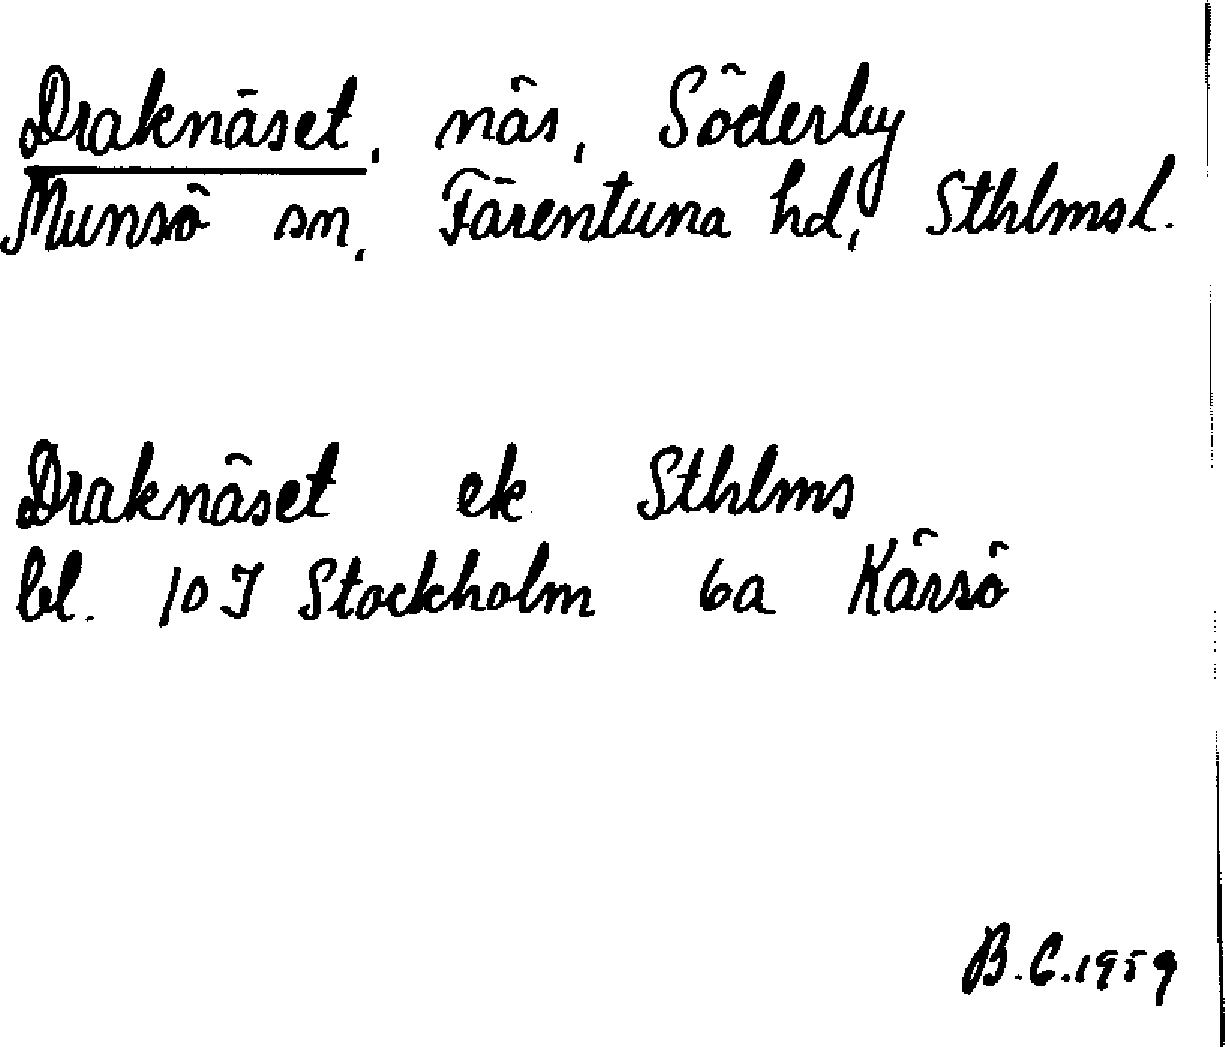 Draknäset, näs, Söderby
Munsö sn, Färentuna hd, Sthlmsl.
Draknäset ek Sthlms
bl. 10 I Stockholm 6a Kärsö
B.C. 1959